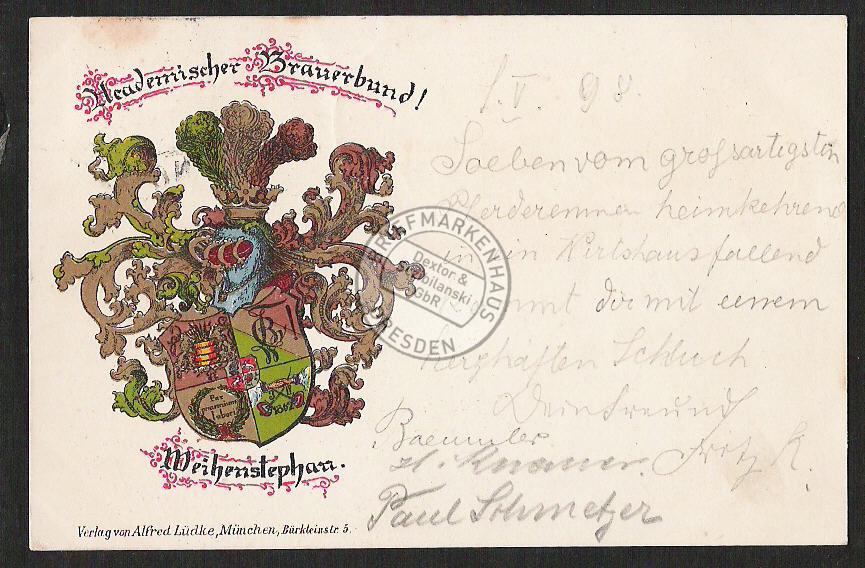 Academischer Brauerbund!
Par praemium labori
1862
Weihenstephan.
Verlag von Alfred Lüdke, München, Bürkleinstr. 5.
1. V. 98.
Soeben vom großartigsten
Pferderennen heimkehrend
in ein Wirtshaus fallend
dir mit einem
herzhaften Schluck
Dein Freund
Fritz K.
Paul Schmetzer
BRIEFMARKENHAUS
Dextor &
GbR
DRESDEN